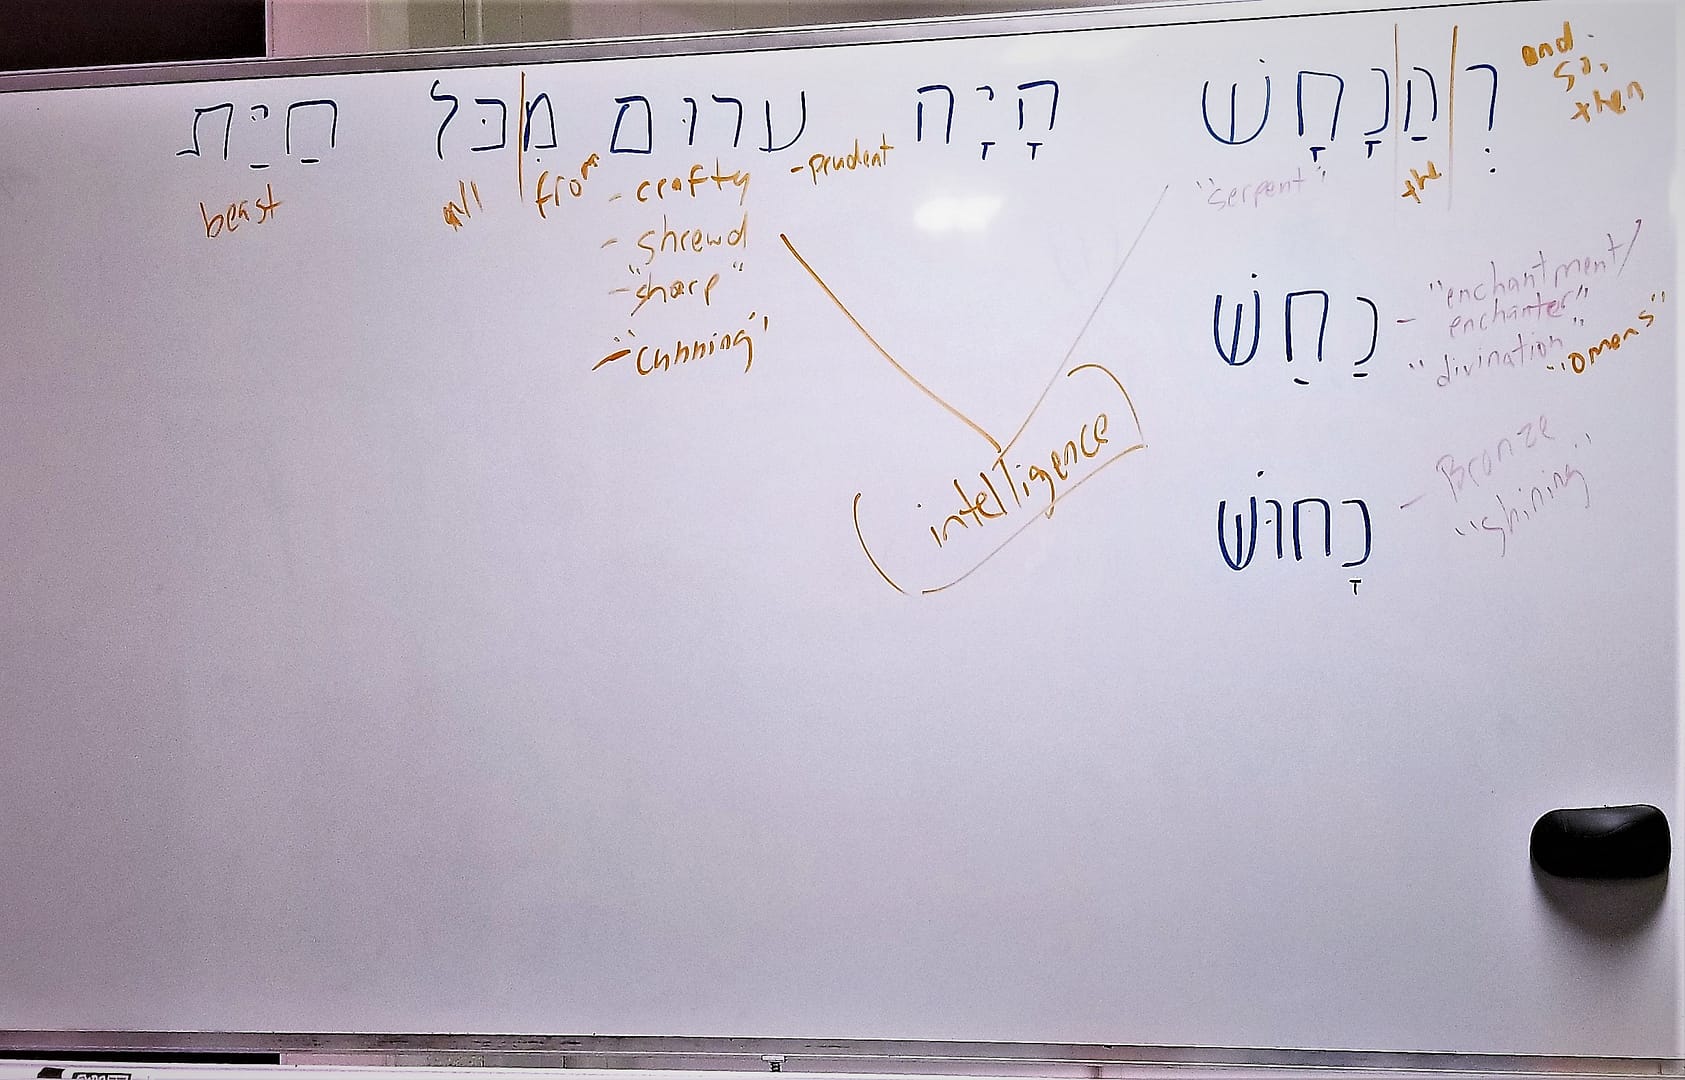 וְהַנָּחָשׁ הָיָה ערום מִכֹּל חַיַּת
and
so,
then
the
"serpent"
- prudent
- crafty
- shrewd
- "sharp"
- "cunning"
from
all
beast
נַחַשׁ - "enchantment/
enchanter"
"divination"
"omens"
(intelligence)
נָחוּשׁ - Bronze
"shining"